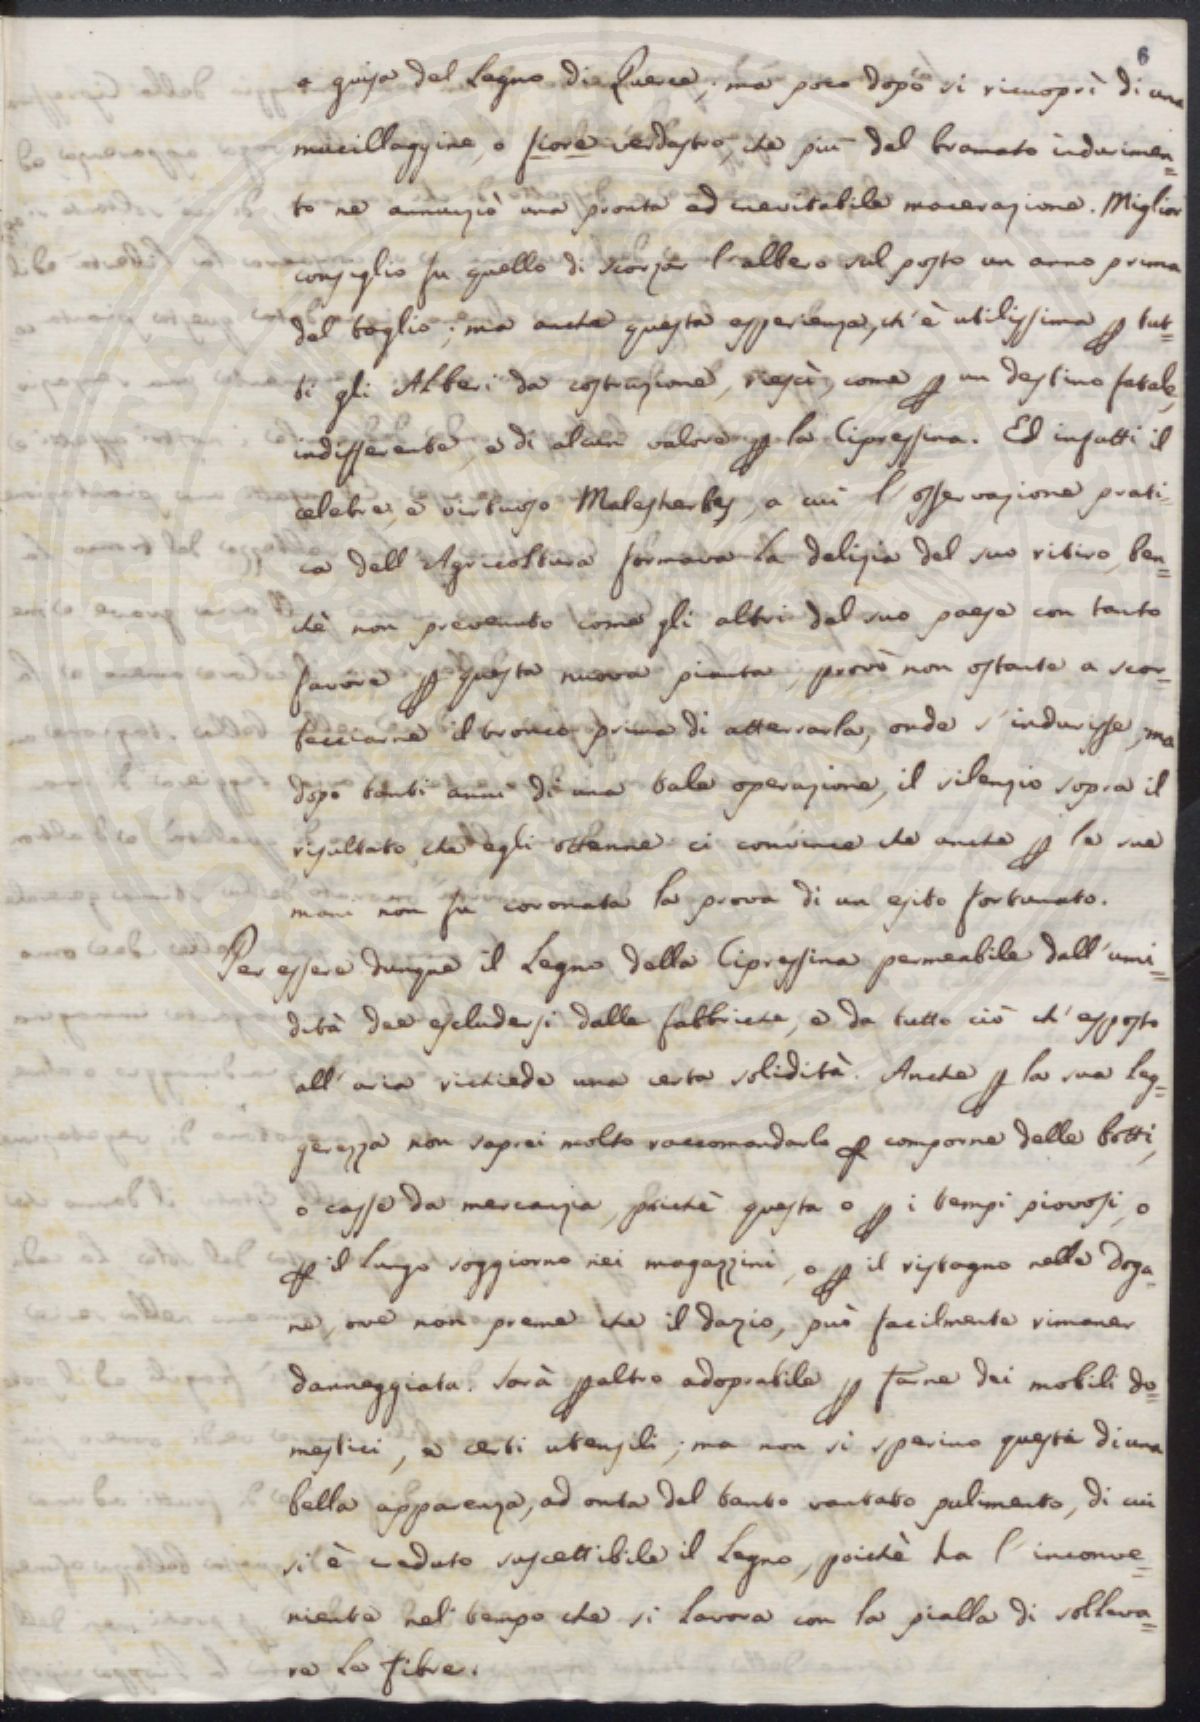 6
a guisa del Legno di Querce; ma poco dopo si ricuoprì di una
mucillaggine, o fiore verdastro, che più del bramato indurimen=
to ne annunziò una pronta ed inevitabile macerazione. Miglior
consiglio fu quello di scorzar l'albero sul posto un anno prima
del taglio; ma anche questa esperienza, ch'è utilissima p tut=
ti gli Alberi da costruzione, riescì, come p un destino fatale,
indifferente, e di alcun valore p la Cipressina. Ed infatti il
celebre, e virtuoso Malesherbes, a cui l'osservazione prati=
ca dell'Agricoltura formava la delizia del suo ritiro, ben=
chè non prevenuto come gli altri del suo paese con tanto
favore p questa nuova pianta, provò non ostante a scor=
tecciarne il tronco prima di atterrarla, onde s'indurisse, ma
dopo tanti anni di una tale operazione, il silenzio sopra il
risultato, che egli ottenne ci convince che anche p le sue
mani non fu coronata la prova di un esito fortunato.
Per essere dunque il Legno della Cipressina permeabile dall'umi=
dità dee escludersi dalle fabbriche, e da tutto ciò ch'esposto
all'aria richiede una certa solidità. Anche p la sua leg=
gerezza non saprei molto raccomandarlo p comporne delle botti,
o casse da mercanzia, poichè questa o p i tempi piovosi, o
p il lungo soggiorno nei magazzini, o p il ristagno nelle doga=
ne, ove non preme che il dazio, può facilmente rimaner
danneggiata. Sarà paltro adoprabile p farne dei mobili do=
mestici, e certi utensili; ma non si sperino questi di una
bella apparenza, ad onta del tanto vantato pulimento, di cui
si è creduto suscettibile il Legno, poichè ha l'inconve=
niente nel tempo che si lavora con la pialla di solleva=
re le fibre.